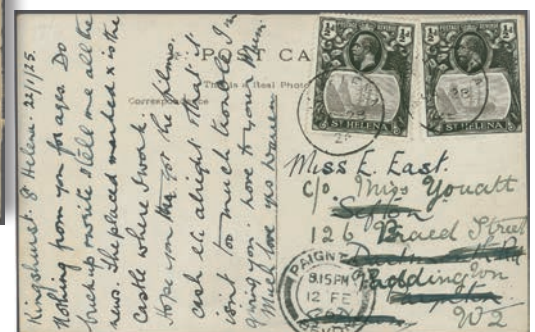 POST CA
This is a Real Photo
Correspondence
Kingshurst. St Helena. 22/1/25.
Nothing from you for ages. Do
buck up & write & tell me all the
news. The placed marked x is the
Castle where I work.
Hope you the got the films.
cash etc alright & that it
isnt too much trouble I'm
giving you. Love to your Mum.
Much love yrs
POSTAGE & REVENUE
½d
½d
ST HELENA
POSTAGE & REVENUE
½d
½d
ST HELENA
Miss E. East.
c/o Miss Youatt
126 Braed Street
Paddington
W2
PAIGNT
9.15PM
12 FE